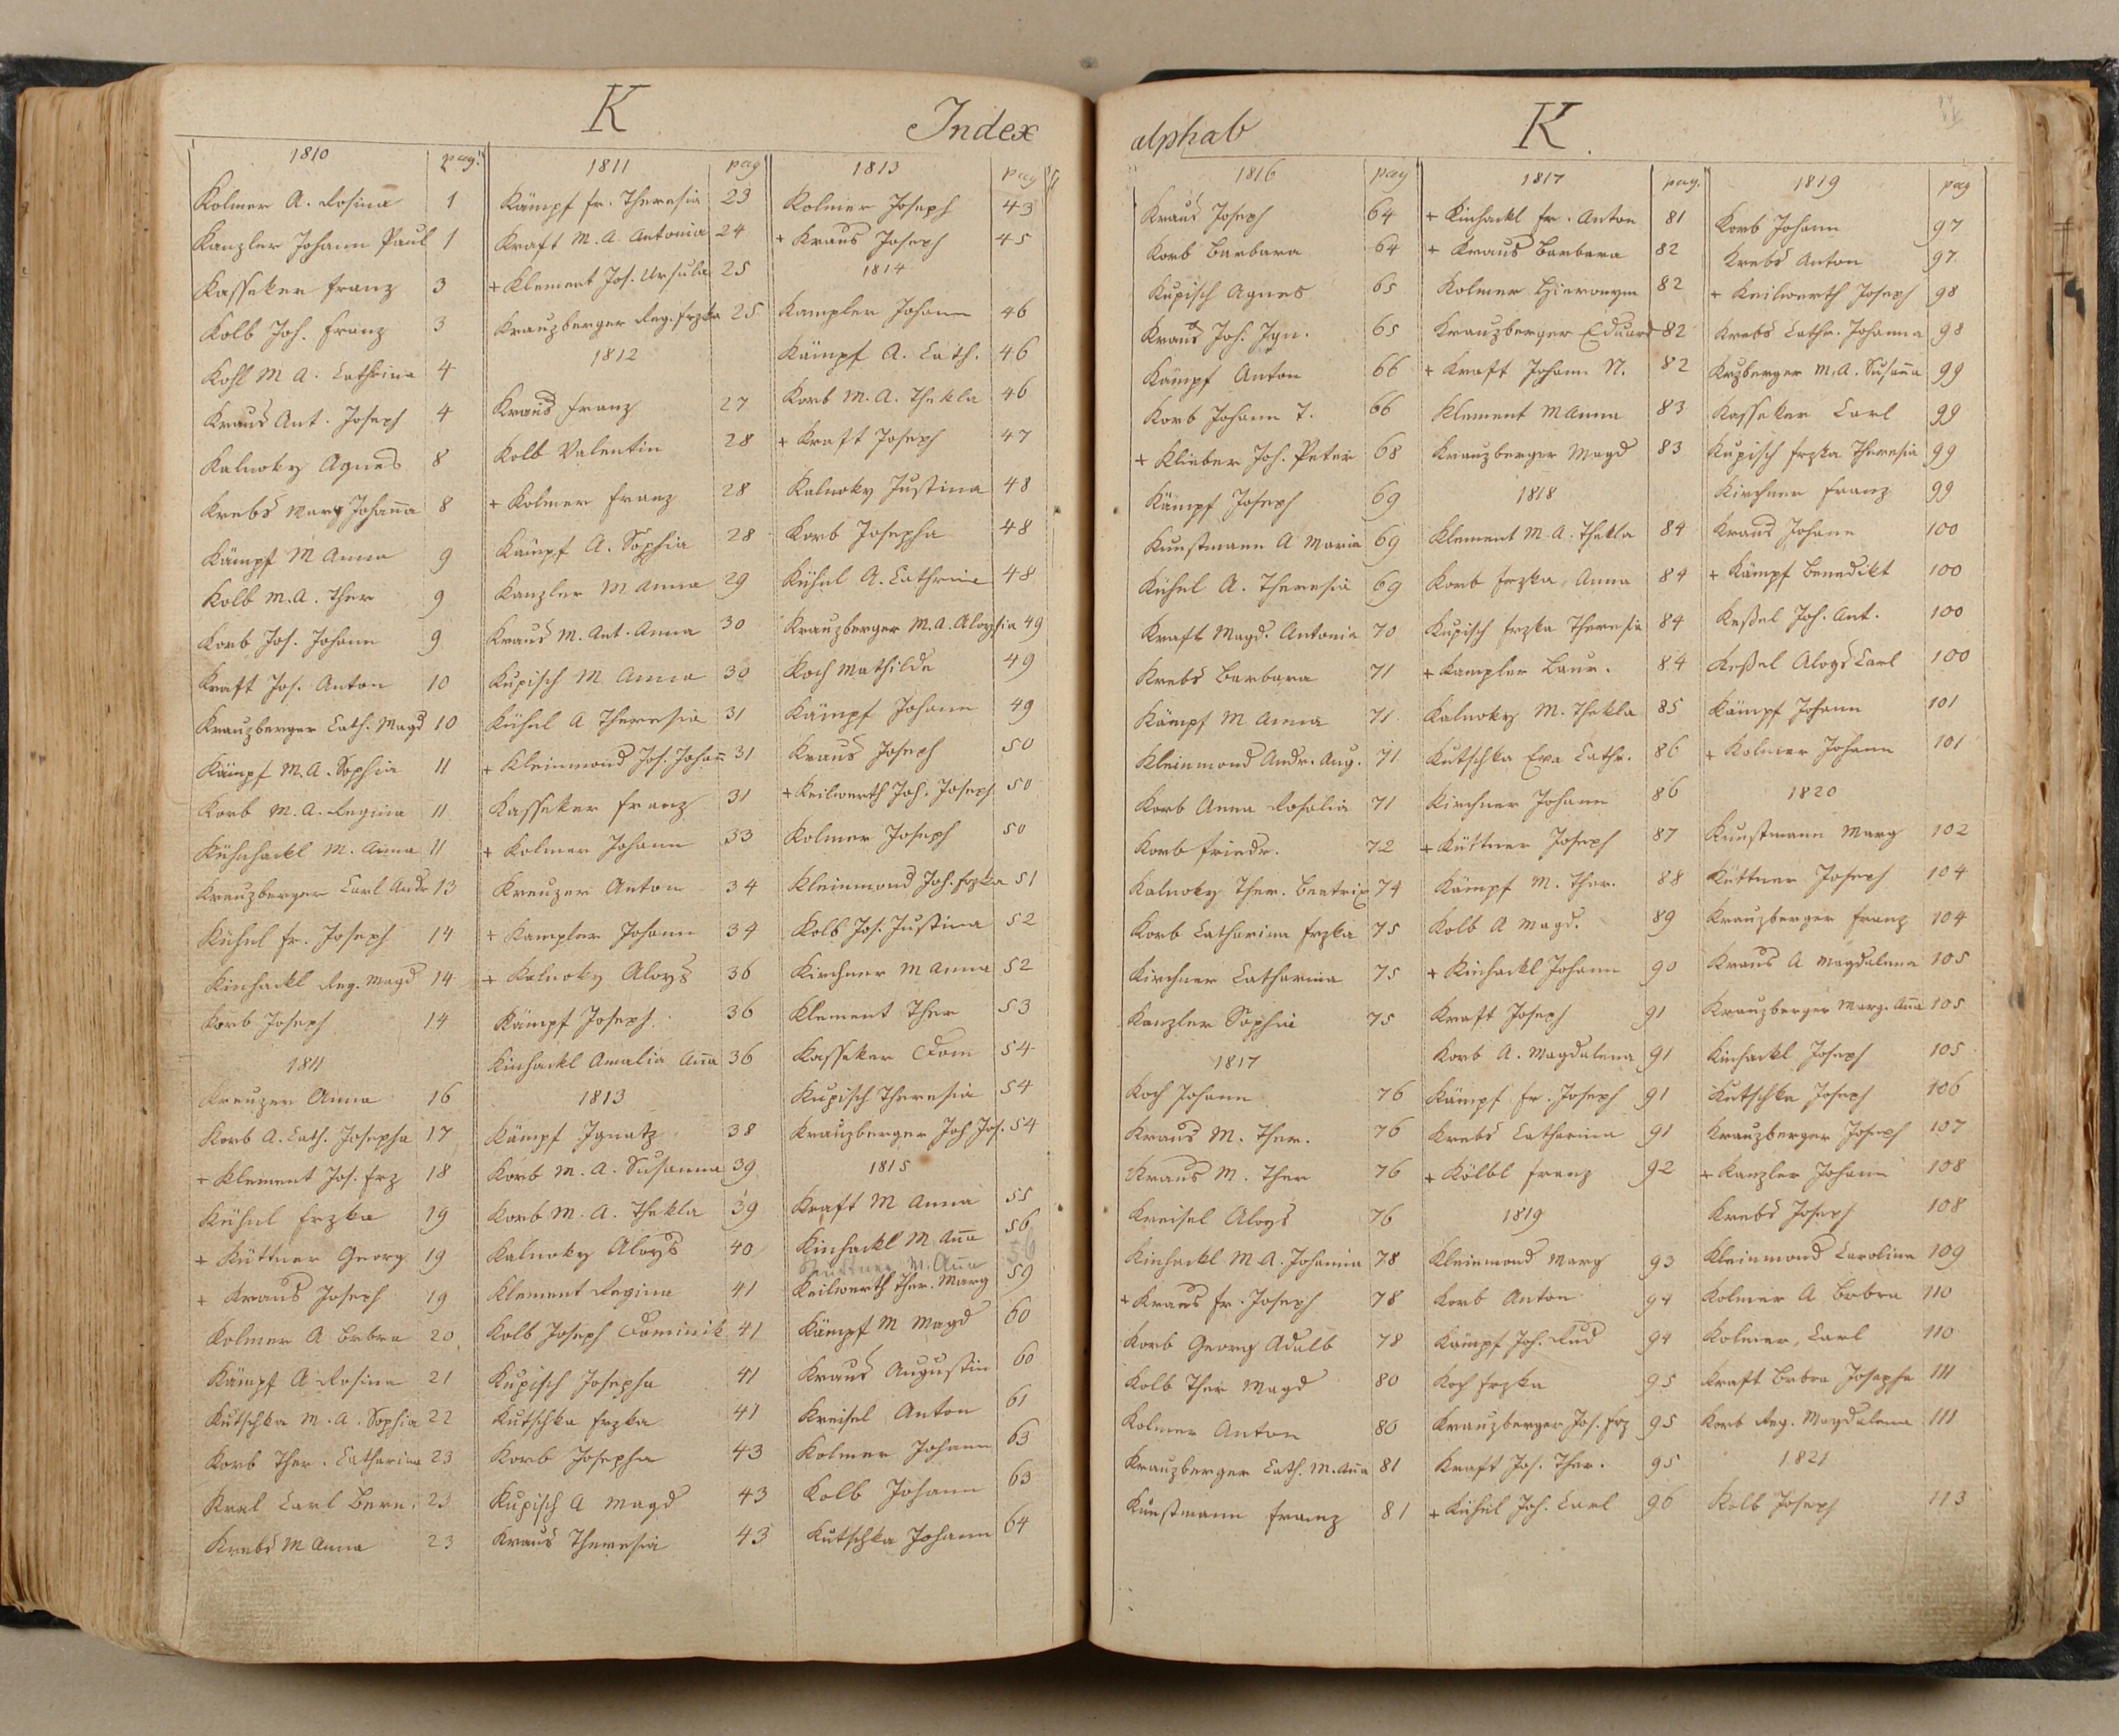 K
Index
1810 pag:
Kolmer A. Rosina 1
Kanzler Johann Paul 1
Kasseker Franz 3
Kolb Joh. Franz 3
Kohl M A. Cathrina 4
Kraus Ant. Joseph 4
Kalnoky Agnes 8
Krebs Marg Johana 8
Kämpf M Anna 9
Kolb M. A. Ther 9
Korb Jos. Johann 9
Kraft Jos. Anton 10
Krauzberger Cath. Magd 10
Kämpf M. A. Sophia 11
Korb M. A. Regina 11
Kühnhackl M. Anna 11
Kreuzberger Carl Andr 13
Kühnl Fr. Joseph 14
Kinhackl Reg. Magd 14
Korb Joseph 14
1811
Kreuzer Anna 16
Korb A. Cath. Josepha 17
+ Klement Jos. Frz 18
Kühnl Frzka 19
+ Küttner Georg 19
+ Kraus Joseph 19
Kolmer A Brbra 20
Kämpf A Rosina 21
Kutschka M. A. Sophia 22
Korb Ther. Catharina 23
Kral Carl Bern. 23
Krebs M Anna 23
1811 pag
Kämpf Fr. Theresia 23
Kraft M. A. Antonia 24
+ Klement Jos. Ursula 25
Krauzberger Reg. Frzka 25
1812
Kraus Franz 27
Kolb Valentin 28
+ Kolmer Franz 28
Kämpf A. Sophia 28
Kanzler M Anna 29
Kraus M. Ant. Anna 30
Kupisch M Anna 30
Kühnl A Theresia 31
+ Kleinmond Jos. Johann 31
Kasseker Franz 31
+ Kolmer Johann 33
Kreuzer Anton 34
+ Kampler Johann 34
+ Kalnoky Aloys 36
Kämpf Joseph 36
Kinhackl Amalia Ana 36
1813
Kämpf Ignatz 38
Korb M. A. Susanna 39
Korb M. A. Thekla 39
Kalnoky Aloys 40
Klement Regina 41
Kolb Joseph Dominik 41
Kupisch Josepha 41
Kutschka Frzka 41
Korb Josepha 43
Kupisch A Magd 43
Kraus Theresia 43
1813 pag
Kolmer Joseph 43
+ Kraus Joseph 45
1814
Kampler Johann 46
Kämpf A. Cath. 46
Korb M. A. Thekla 46
+ Kraft Joseph 47
Kalnoky Justina 48
Korb Josepha 48
Kühnl A. Cathrina 48
Krauzberger M. A. Aloysia 49
Koch Mathilde 49
Kämpf Johann 49
Kraus Joseph 50
+ Keilwerth Joh. Joseph 50
Kolmer Joseph 50
Kleinmond Joh. Frzka 51
Kolb Jos. Justina 52
Kirchner M Anna 52
Klement Ther 53
Kasseker Dom 54
Kupisch Theresia 54
Krauzberger Joh Jos. 54
1815
Kraft M Anna 55
Kinhackl M. Ana 56
Küttner M. Ana 56
Keilwerth Ther. Marg 59
Kämpf M Magd 60
Kraus Augustin 60
Kreisel Anton 61
Kolmer Johann 63
Kolb Johann 63
Kutschka Johann 64
alphab
K.
1816 pag
Kraus Joseph 64
Korb Barbara 64
Kupisch Agnes 65
Kraus Joh. Ign. 65
Kämpf Anton 66
Korb Johann T. 66
+ Klieber Joh. Peter 68
Kämpf Joseph 69
Kunstmann A Maria 69
Kühnl A. Theresia 69
Kraft Magd. Antonia 70
Krebs Barbara 71
Kämpf M Anna 71
Kleinmond Andr. Aug. 71
Korb Anna Rosalia 71
Korb Friedr. 72
Kalnoky Ther. Beatrix 74
Korb Catharina Frzka 75
Kirchner Catharina 75
Kanzler Sophia 75
1817
Koch Johann 76
Kraus M. Ther. 76
Kraus M. Ther 76
Kreisel Aloys 76
Kinhackl M A. Johanna 78
+ Kraus Fr. Joseph 78
Korb Georg Adalb 78
Kolb Ther Magd 80
Kolmer Anton 80
Krauzberger Cath. M. Ana 81
Kunstmann Franz 81
1817 pag.
+ Kinhackl Fr. Anton 81
+ Kraus Barbara 82
Kolmer Hieronym 82
Krauzberger Eduard 82
+ Kraft Johann N. 82
Klement M Anna 83
Krauzberger Magd 83
1818
Klement M. A. Thekla 84
Korb Frzka Anna 84
Kupisch Frzka Theresia 84
+ Kampler Laur. 84
Kalnoky M. Thekla 85
Kutschka Eva Cathr. 86
Kirchner Johann 86
+ Küttner Joseph 87
Kämpf M. Ther. 88
Kolb A Magd. 89
+ Kinhackl Johann 90
Kraft Joseph 91
Korb A. Magdalena 91
Kämpf Fr. Joseph 91
Krebs Catharina 91
+ Kölbl Franz 92
1819
Kleinmond Marg 93
Korb Anton 94
Kämpf Joh. Rud 94
Koch Frzka 95
Krauzberger Jos. Frz 95
Kraft Jos. Ther. 95
+ Kühnl Joh. Carl 96
1819 pag
Korb Johann 97
Krebs Anton 97
+ Keilwerth Joseph 98
Krebs Cathr. Johanna 98
Krzberger M. A. Susana 99
Kasseker Carl 99
Kupisch Frzka Theresia 99
Kirchner Franz 99
Kraus Johann 100
+ Kämpf Benedikt 100
Keßel Joh. Ant. 100
Keßel Aloys Carl 100
Kämpf Johann 101
+ Kolmer Johann 101
1820
Kunstmann Marg 102
Küttner Joseph 104
Krauzberger Franz 104
Kraus A Magdalena 105
Krauzberger Marg. Ana 105
Kinhackl Joseph 105
Kutschka Joseph 106
Krauzberger Joseph 107
+ Kanzler Johann 108
Krebs Joseph 108
Kleinmond Carolina 109
Kolmer A Brbra 110
Kolmer Carl 110
Kraft Brbra Josepha 111
Korb Reg. Magdalena 111
1821
Kolb Joseph 113